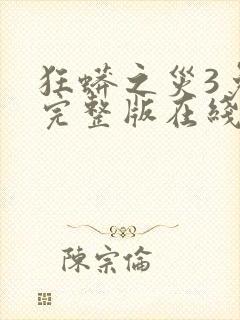 狂蟒之災3
完整版在綫
陳宗倫